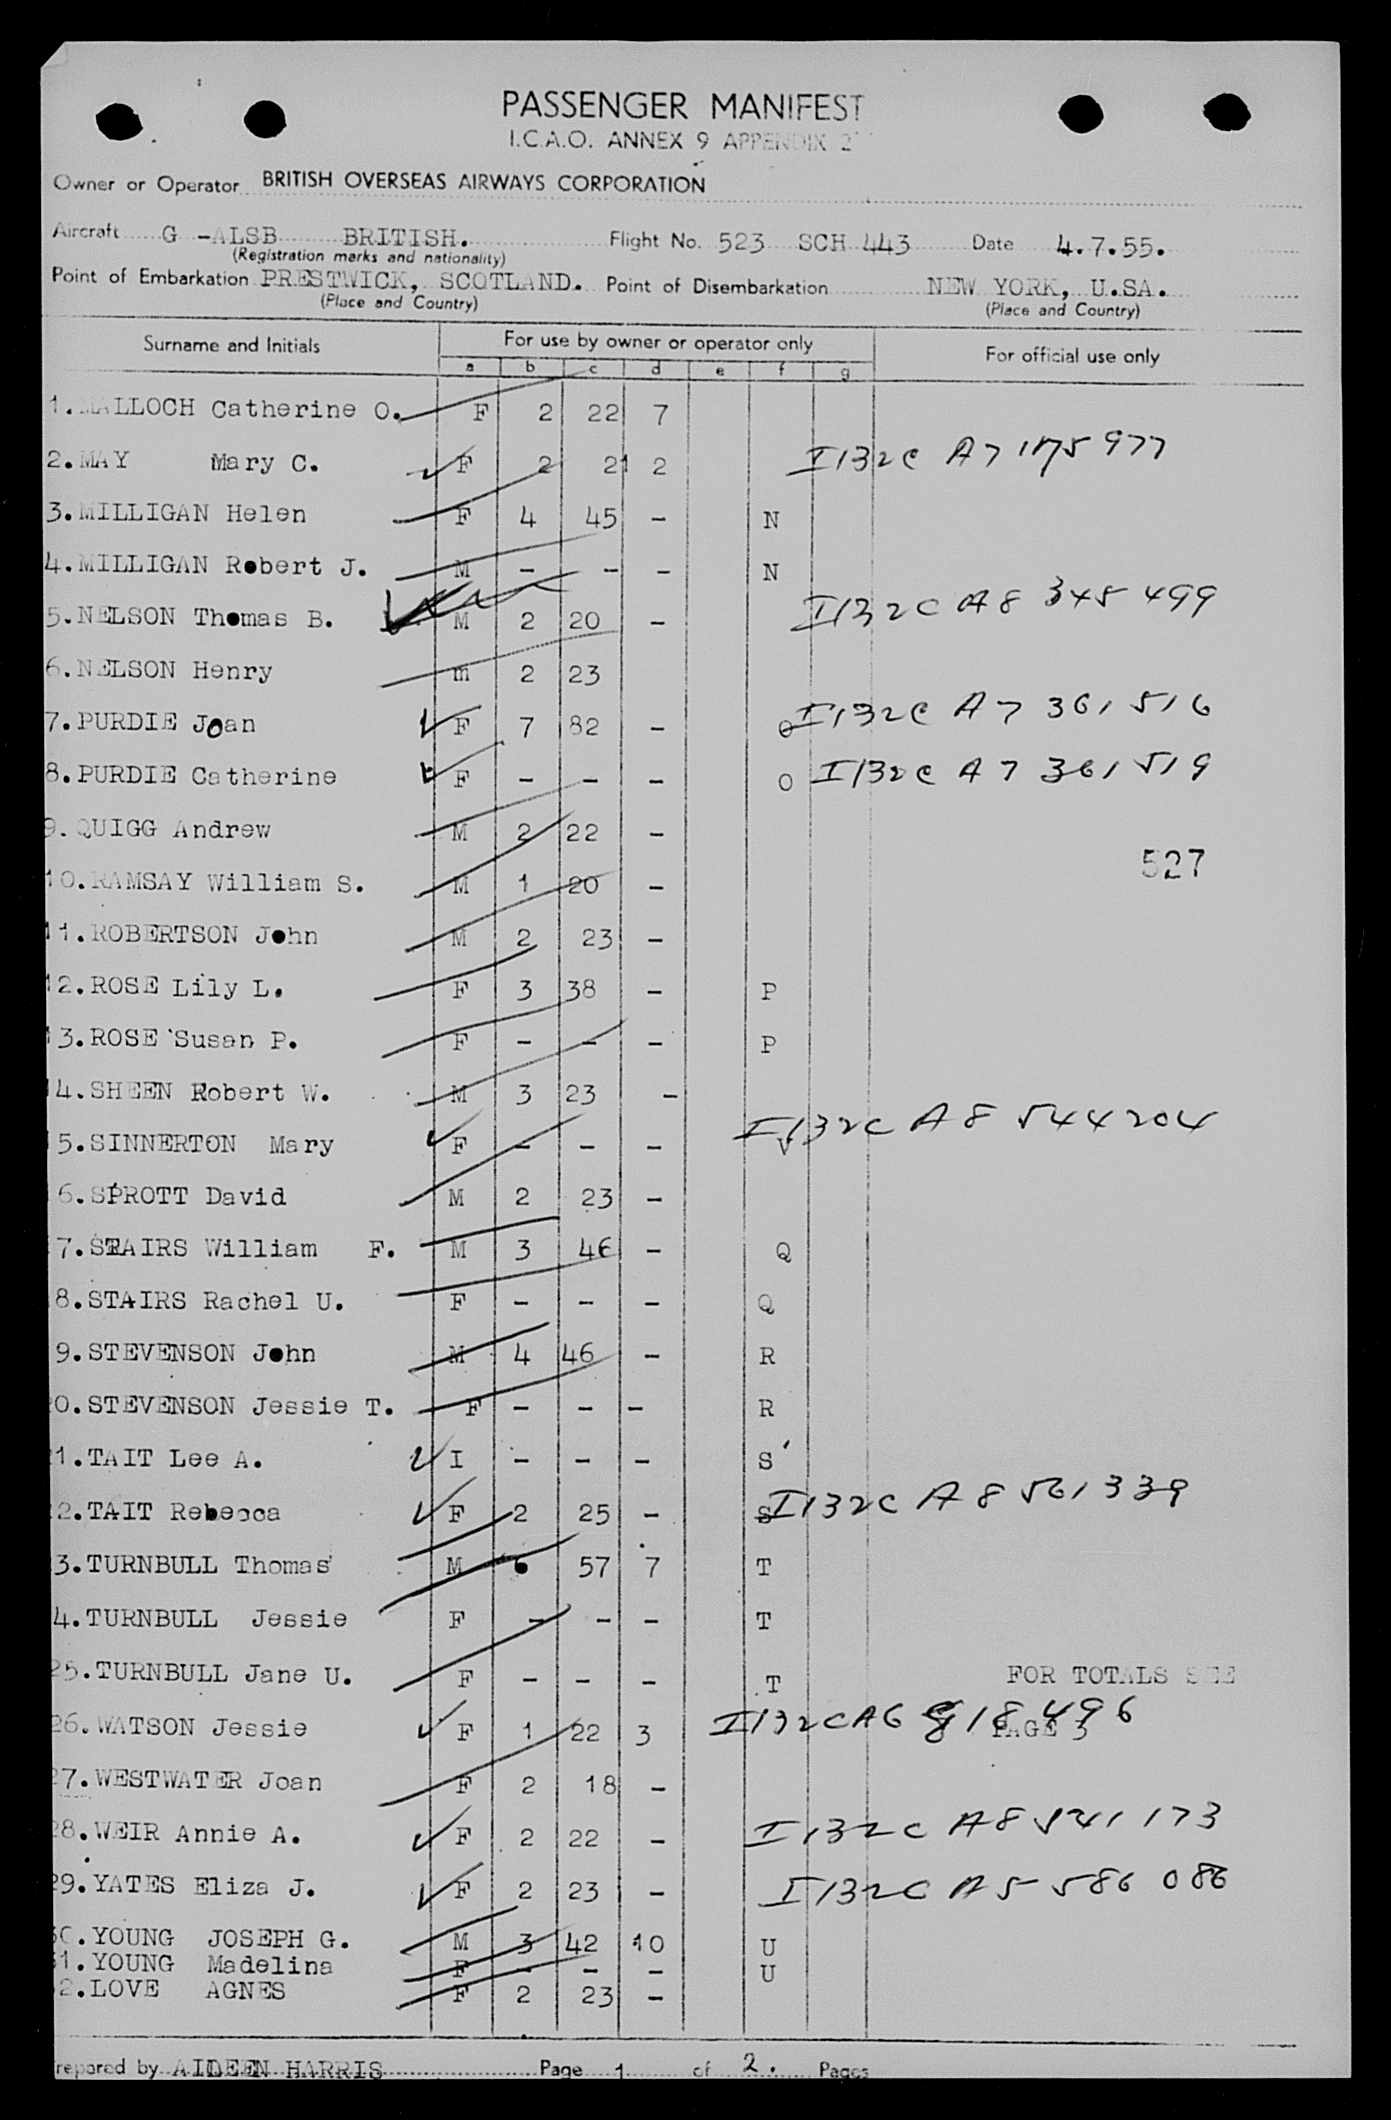 PASSENGER MANIFEST
I.C.A.O. ANNEX 9 APPENDIX 2
Owner or Operator BRITISH OVERSEAS AIRWAYS CORPORATION
Aircraft G -ALSB BRITISH. Flight No. 523 SCH 443 Date 4.7.55.
(Registration marks and nationality)
Point of Embarkation PRESTWICK, SCOTLAND. Point of Disembarkation NEW YORK, U.SA.
(Place and Country) (Place and Country)
Surname and Initials For use by owner or operator only For official use only
a b c d e f g
1. MALLOCH Catherine O. F 2 22 7
2. MAY Mary C. F 2 21 2 I132C A7 175 977
3. MILLIGAN Helen F 4 45 - N
4. MILLIGAN Robert J. M - - - N
5. NELSON Thomas B. M 2 20 - I132C A8 345 499
6. NELSON Henry m 2 23
7. PURDIE Joan F 7 82 - O I132C A7 361 516
8. PURDIE Catherine F - - - O I132C A7 361 519
9. QUIGG Andrew M 2 22 -
527
10. RAMSAY William S. M 1 20 -
11. ROBERTSON John M 2 23 -
12. ROSE Lily L. F 3 38 - P
13. ROSE Susan P. F - - - P
14. SHEEN Robert W. M 3 23 -
15. SINNERTON Mary F - - - V I132C A8 544204
6. SPROTT David M 2 23 -
7. STAIRS William F. M 3 46 - Q
8. STAIRS Rachel U. F - - - Q
9. STEVENSON John M 4 46 - R
0. STEVENSON Jessie T. F - - - R
1. TAIT Lee A. I - - - S
2. TAIT Rebecca F 2 25 - S I132C A8 561339
3. TURNBULL Thomas M 6 57 7 T
4. TURNBULL Jessie F - - - T
25. TURNBULL Jane U. F - - - T FOR TOTALS SEE
26. WATSON Jessie F 1 22 3 I132C A6 918 496 PAGE 3
27. WESTWATER Joan F 2 18 -
28. WEIR Annie A. F 2 22 - I132C A8 541 173
29. YATES Eliza J. F 2 23 - I132C A5 586 086
30. YOUNG JOSEPH G. M 3 42 10 U
31. YOUNG Madelina F - - - U
2. LOVE AGNES F 2 23 -
repared by AIDEEN HARRIS Page 1 of 2. Pages